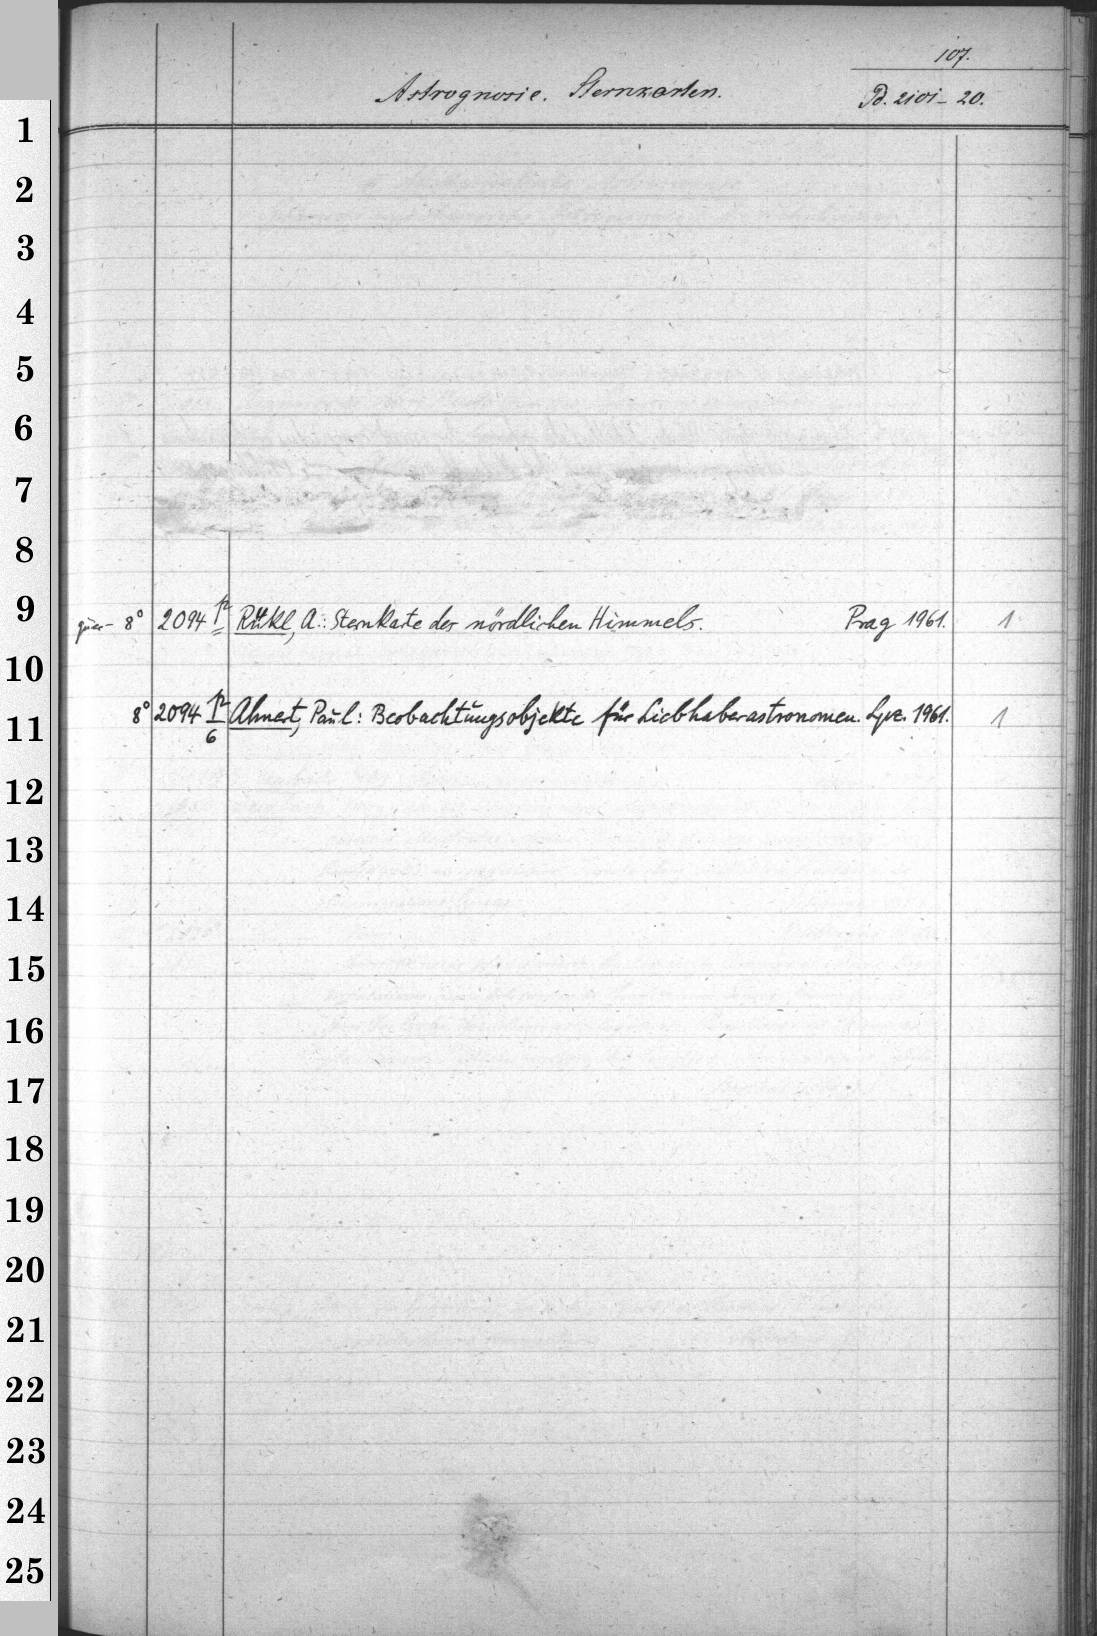 107.
Astrognosie. Sternkarten.
Pd. 2101-20.
1
2
3
4
5
6
7
8
9
quer- 8° 2094 Rükl, A.: Sternkarte des nördlichen Himmels. Prag 1961. 1
10
8° 2094 6 Ahnert, Paul: Beobachtungsobjekte für Liebhaberastronomen. Lpz. 1961. 1
11
12
13
14
15
16
17
18
19
20
21
22
23
24
25